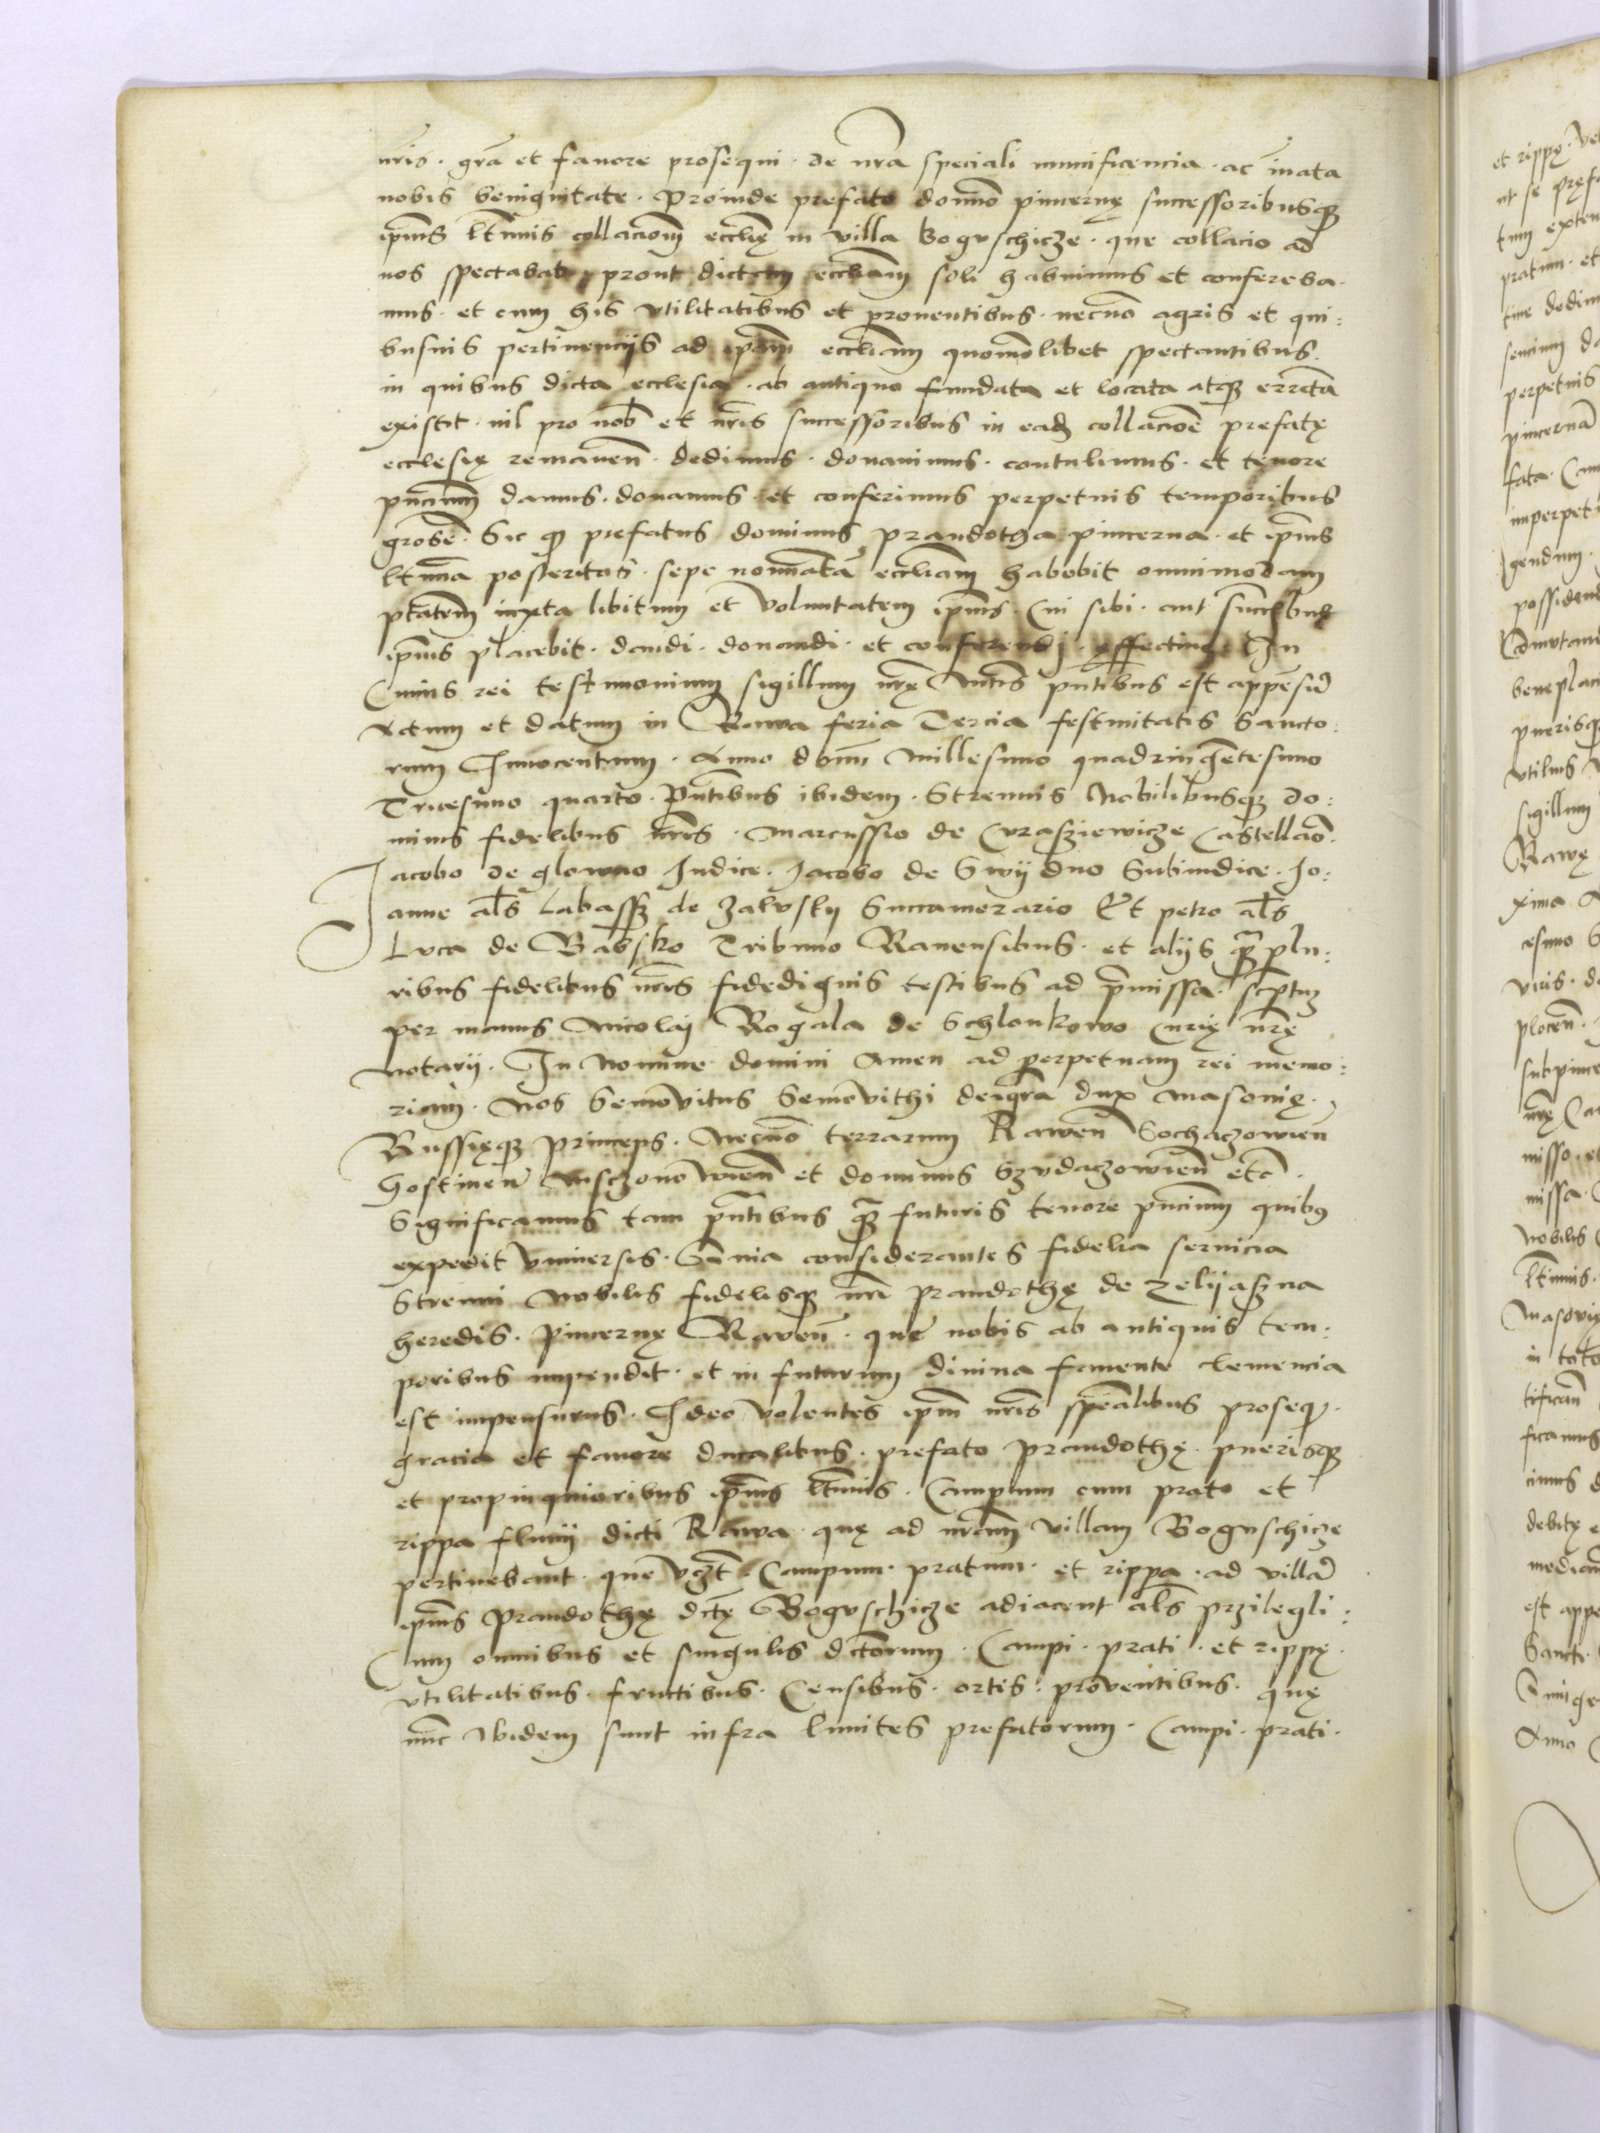 nr̃is · gr̃a et fauore prosequi · de nr̃a speciali munificencia · ac inata
nobis benignitate · Proinde prefato domino pincernę successoribusqȝ
ip̃ius lt̃imis collacionem eccl̃ię in villa Bogvschicze · que collacio ad
nos spectabat prout dictam eccl̃iam soli habuimus et confereba·
mus · et cum his vtilitatibus et prouentibus · necnõ agris et qui:
busuis pertinencijs ad ip̃am eccl̃iam quomõlibet spectantibus
in quibus dicta ecclesia · ab antiquo fundata et locata atqȝ erecta
existit · nil pro nob̃ et nr̃is successoribus in eadȝ collacioẽ prefatę
ecclesię remanen̄ · dedimus · donauimus · contulimus · et tenore
pñcium damus · donamus · et conferimus perpetuis temporibus
Sic qȝ prefatus dominus Prandotha pincerna · et ip̃ius
lt̃ima posteritas · sepe nominatã eccl̃iam habebit omnimodam
pt̃atem iuxta libitum et voluntatem ip̃ius · Cui sibi · aut succ̃ibus
ip̃ius placebit · dandi · donandi · et conferendi · effectiue In
Cuius rei testimonium sigillum nr̃ę pñtibus est appensũ
Actum et datum in Rawa feria Tercia festiuitatis Sancto:
rum Innocentum · Anno dñi Millesimo quadringẽtesimo
Tricesimo quarto · Pñtibus ibidem · Strennis Nobilibusqȝ do:
minis fidelibus nr̃is · Marcussio de Curasziewicze Castellaõ ·
Jacobo de glowno Judice · Jacobo de Swyduo Subiudice · Jo:
anne al̃s Labassȝ de Zalvsky Succamerario Et petro al̃s
Lvca de Babsko Tribuno Rauensibus · et alijs qȝ plu:
ribus fidelibus nr̃is fidedignis testibus ad p̃missa · sc̃ptum
per manus Nicolaj Rogala de Schlonkowo Curię nr̃ę
Notarij · In Nomine domini Amen ad perpetuam rei memo:
riam · Nos Semovitus Semovithi dei gr̃a dux Masouię ·
Russięqȝ princeps · Necnõ terrarum Rawen̄ Sochaczowien̄
Gostinen̄ Msczonowien̄ et dominus Szvdaczowien̄ etc̃ ·
Significamus tam pñtibus qȝ futuris tenore pñcium quibus
expedit vniuersis · considerantes fidelia seruicia
Strenui Nobilis fidelisqȝ nr̃i Prandothę de Zelyaszna
heredis · Pincernę Rawen̄ · quę nobis ab antiquis tem·
poribus impendit · et in futurum diuina fauente clemencia
est impensurus · Ideo volentes ip̃m nr̃is sp̃calibus proseq̃ ·
gracia et fauore ducalibus · prefato Prandothę · puerisqȝ
et propinquioribus ip̃ius lt̃imis · Campum cum prato et
rippa fluuij dicti Rawa · quę ad nr̃am villam Boguschicze
pertinebant · que vcȝt · Campum · pratum · et rippa · ad villã
ip̃ius Prandothę dc̃tę Bogvschicze adiacent al̃s przilegli:
Cum omnibus et singulis dc̃torum · Campi · prati · et rippę ·
vtilitatibus · fructibus · Censibus · ortis · prouentibus · quę
nũc ibidem sunt infra limites prefatorum · Campi · prati ·